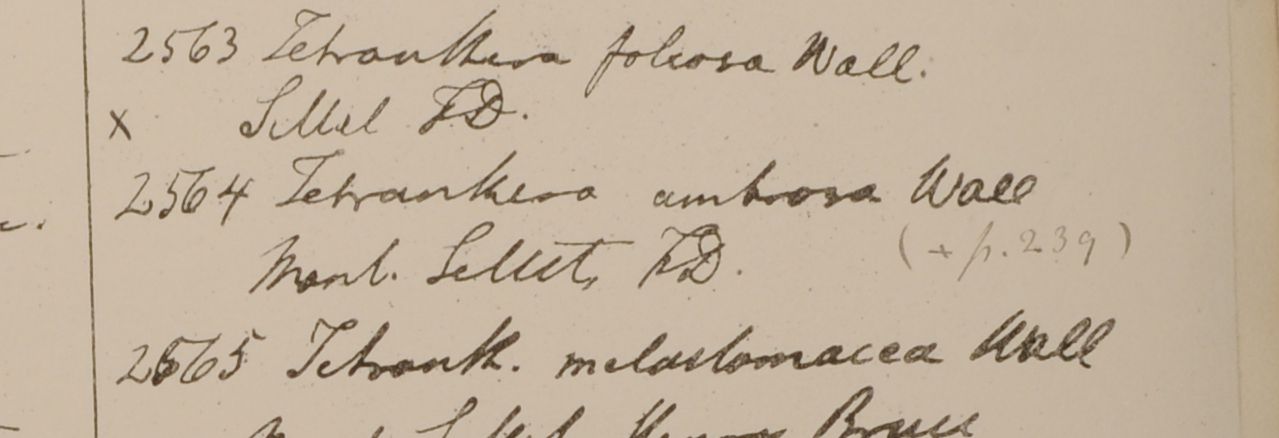 2563 Tetranthera foliosa Wall.
x Sillet FD.
2564 Tetranthera ambrosa Wall
Mont. Sillet, FD. (+ p. 239)
2565 Tetranth. melastomacea Wall
Mont Sillet Bruce